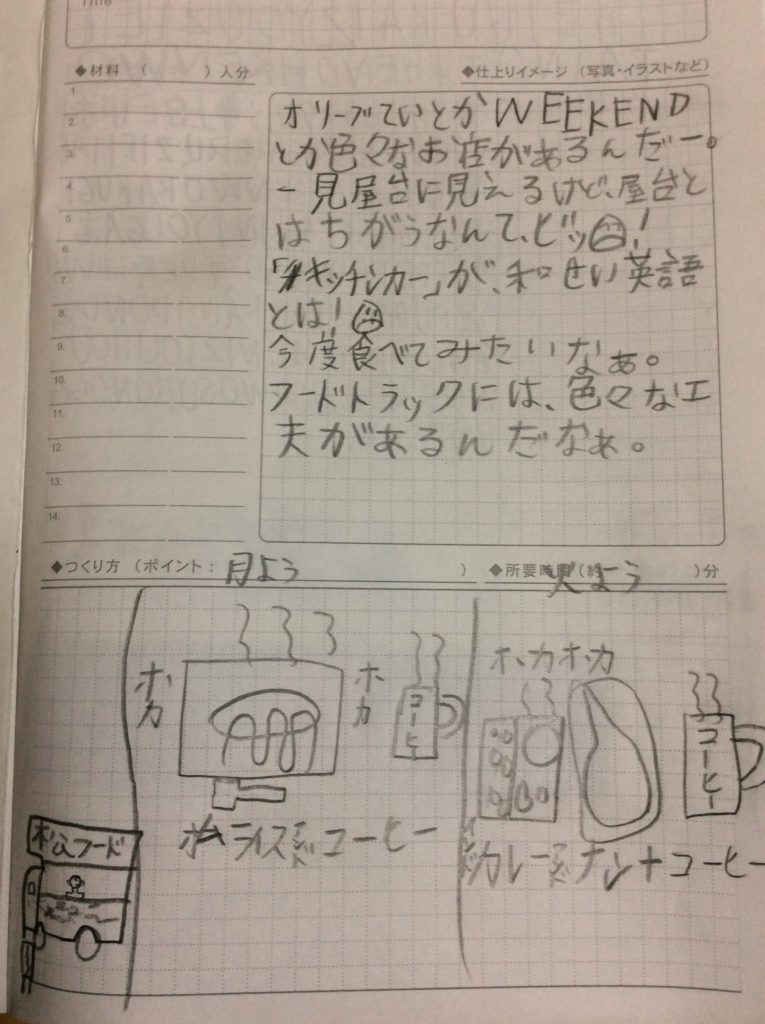 Title
◆材料 （　　　）人分
◆仕上りイメージ （写真・イラストなど）
1.
2.
3.
4.
5.
6.
7.
8.
9.
10.
11.
12.
13.
14.
オリーブていとかWEEKEND
とか色々なお店があるんだー。
一見屋台に見えるけど、屋台と
はちがうなんて、ビッ!
「キッチンカー」が、和せい英語
とは!
今度食べてみたいなぁ。
フードトラックには、色々な工
夫があるんだなぁ。
◆つくり方 （ポイント： 月よう ）
◆所要時間 （約 火よう ）分
ホカ
ホカ
コーヒー
ホカホカ
コーヒー
ムライス コーヒー
カレー ナン+コーヒー
フード